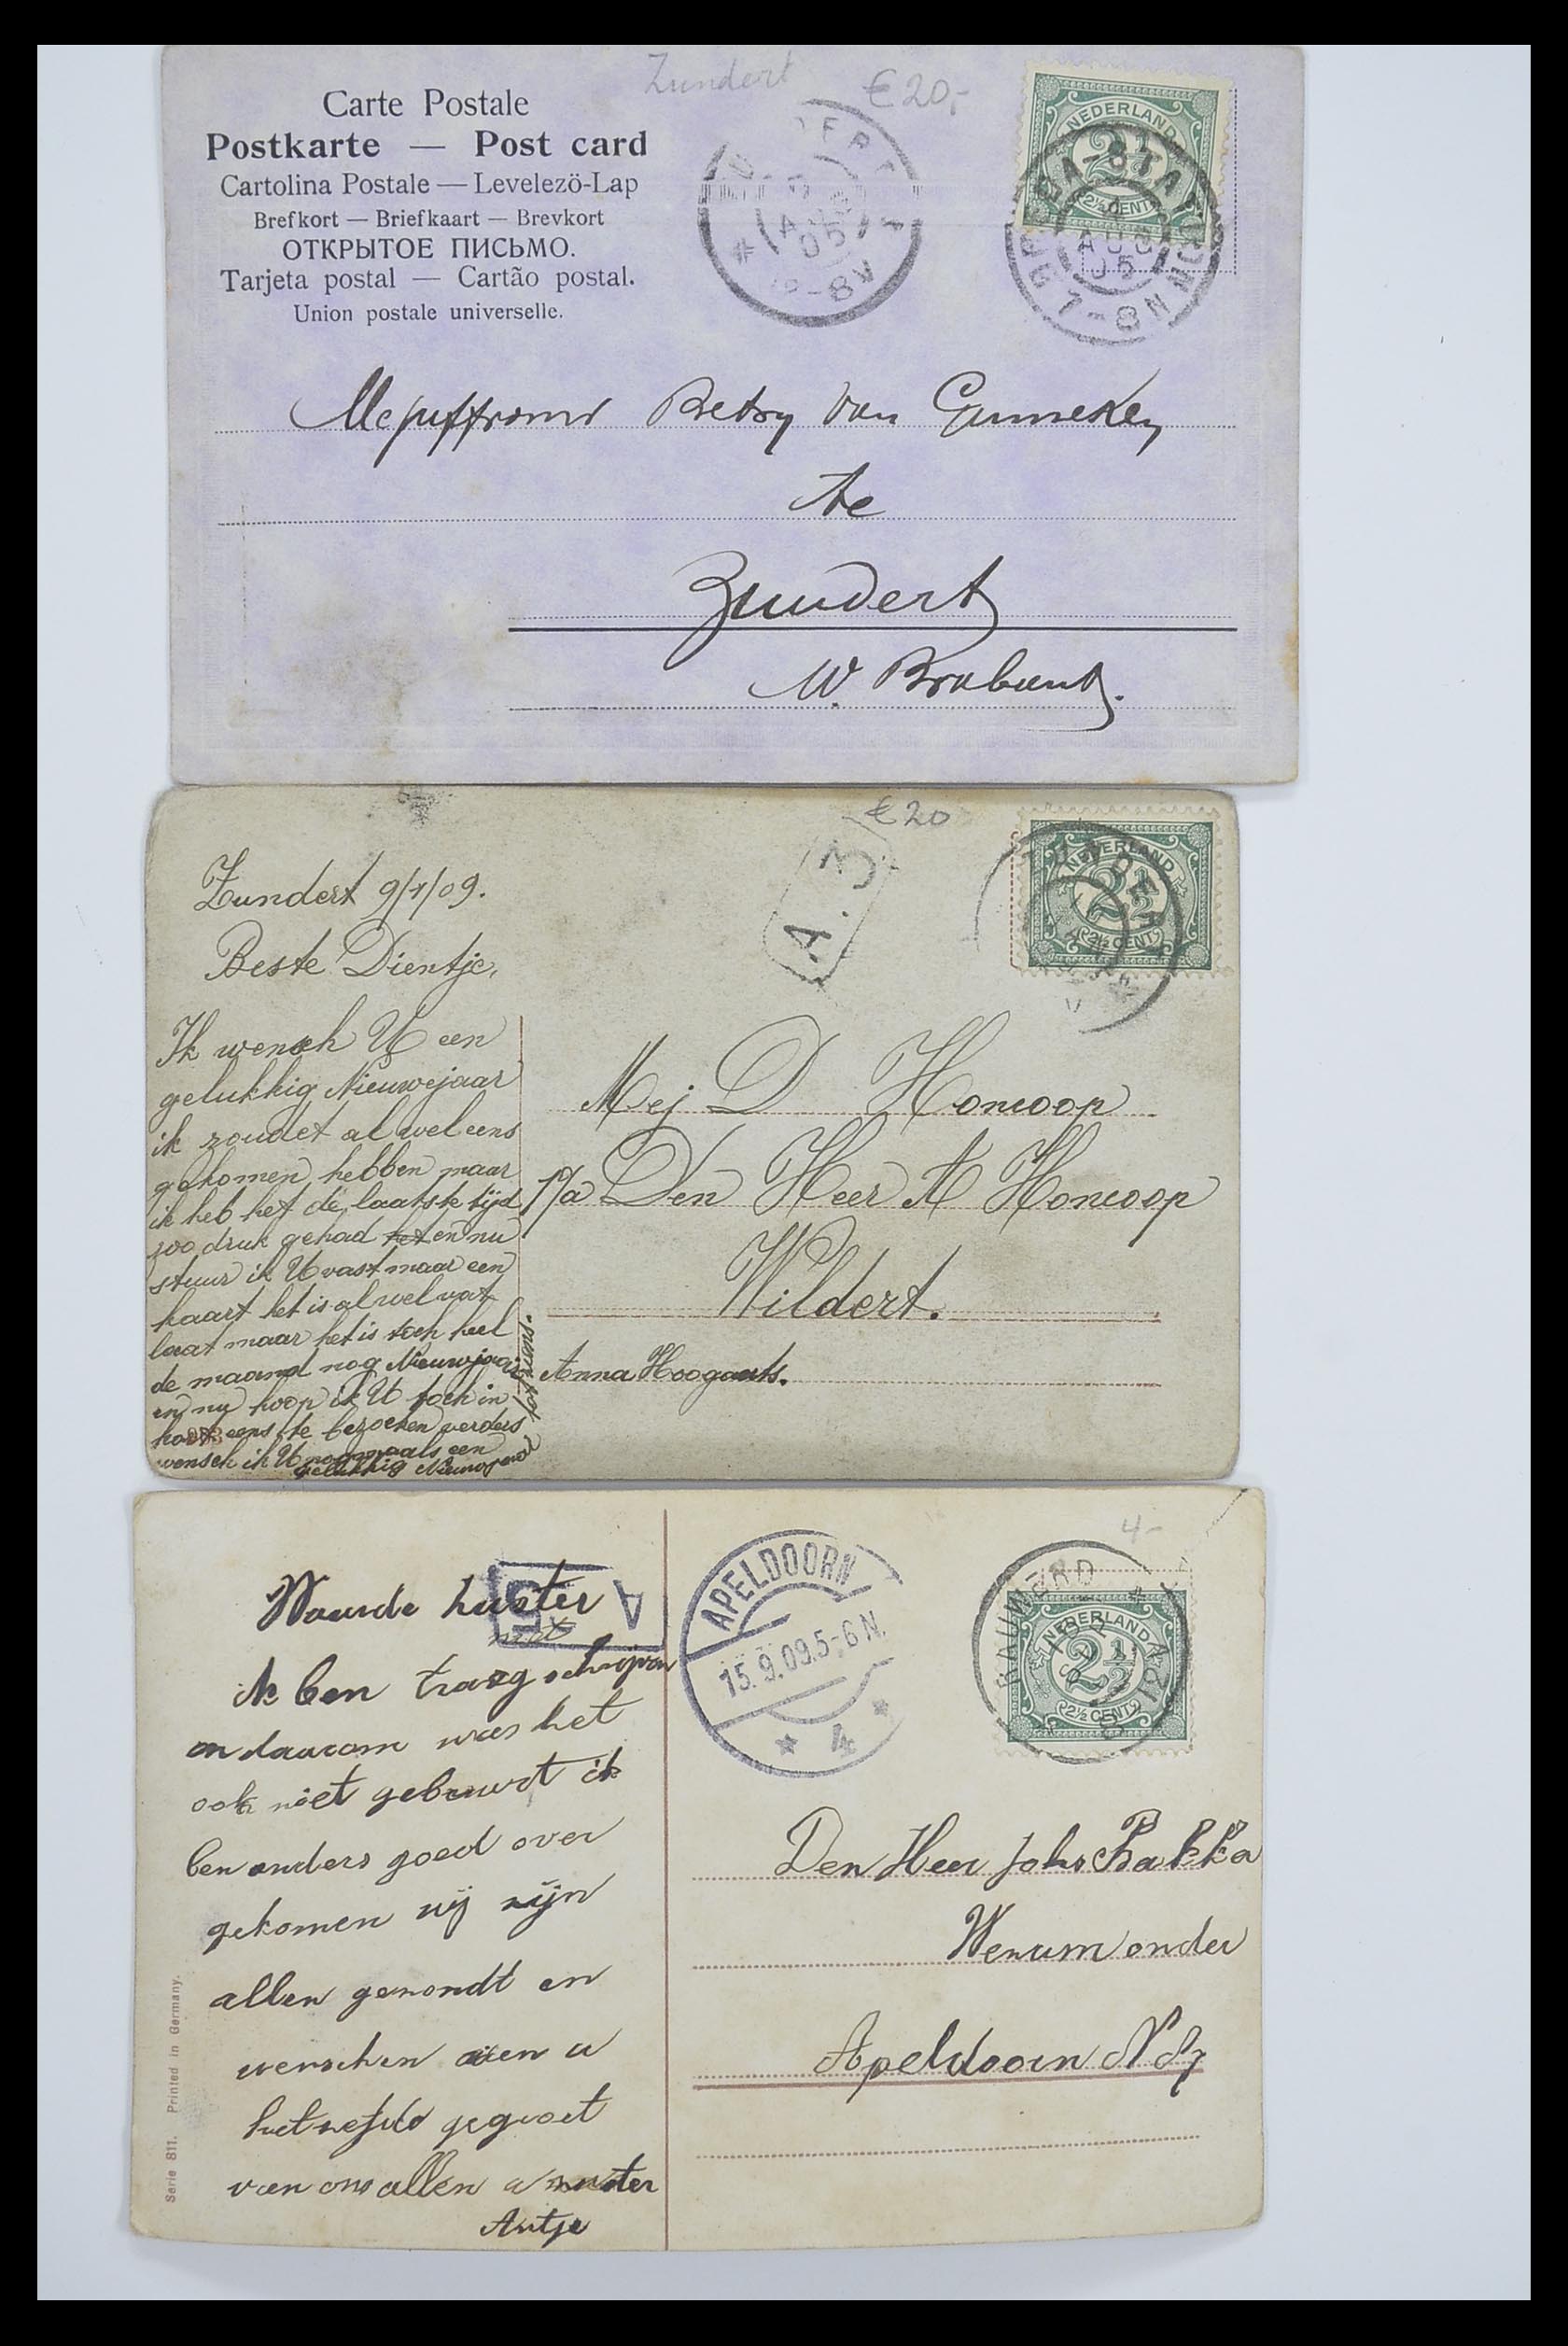 Zundert
€ 20,-
Carte Postale
Postkarte — Post card
Cartolina Postale — Levelezö-Lap
Brefkort — Briefkaart — Brevkort
ОТКРЫТОЕ ПИСЬМО.
Tarjeta postal — Cartão postal.
Union postale universelle.
AUG
05
NEDERLAND
2½
2½ CENT
BREDA-STATION
AUG
05
7-8N
Mejuffrouw Betsy van Ginneken
te
Zundert
W. Brabant.
€ 20
A.3
NEDERLAND
2½
2½ CENT
Zundert 9/1/09.
Beste Dientje,
Ik wensch U een
gelukkig Nieuwejaar
ik zoudet al wel eens
gekomen hebben maar
ik heb het de laatste tijd
zoo druk gehad het en nu
stuur ik U vast maar een
kaart het is al wel wat
laat maar het is toch heel
de maand nog Nieuwjaar
en nu hoop ik U toch in
kort eens te bezoeken verders
wensch ik U nogmaals een
gelukkig Nieuwejaar
Mej D Honcoop
p/a Den Heer A Honcoop
Wildert.
Anna Hoogaarts.
4-
A
5
APELDOORN
15.9.09.5-6N.
4
NEDERLAND
2½
2½ CENT
Waarde
ik ben traag schrijven
en daarom was het
ook niet gebeurt ik
ben anders goed over
gekomen wij zijn
allen gezondt en
wenschen
gegroet
van ons allen u zuster
Antje
Den Heer Johs Bakker
Wenum onder
Apeldoorn
Serie 811. Printed in Germany.